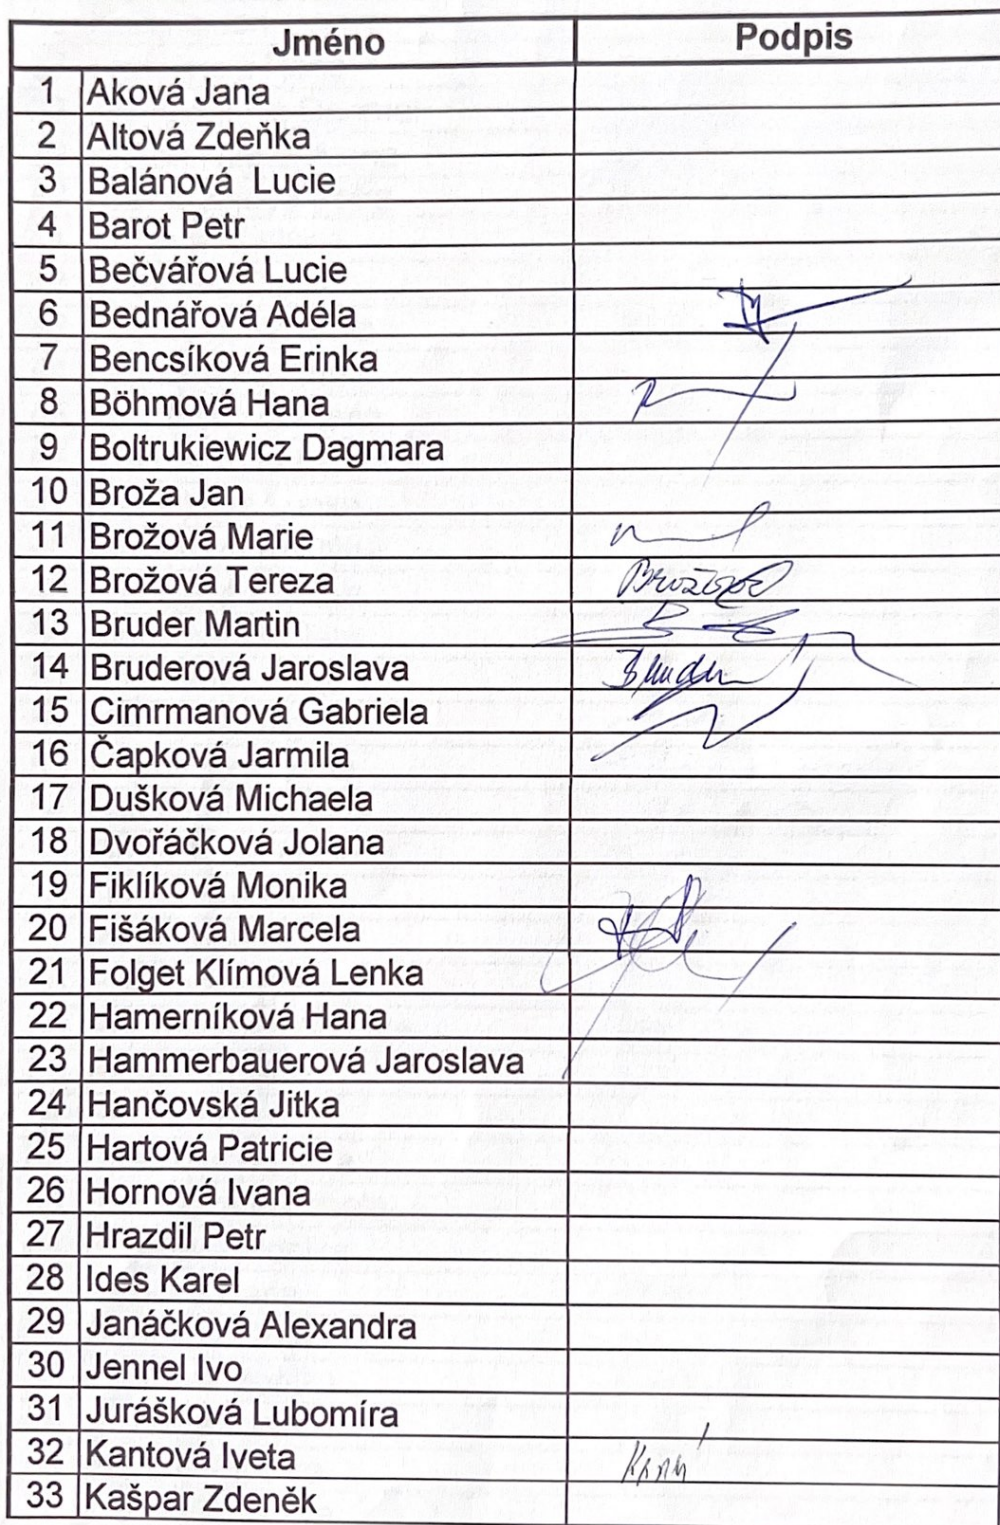 Jméno Podpis
1 Aková Jana
2 Altová Zdeňka
3 Balánová Lucie
4 Barot Petr
5 Bečvářová Lucie
6 Bednářová Adéla
7 Bencsíková Erinka
8 Böhmová Hana
9 Boltrukiewicz Dagmara
10 Broža Jan
11 Brožová Marie
12 Brožová Tereza
13 Bruder Martin
14 Bruderová Jaroslava
15 Cimrmanová Gabriela
16 Čapková Jarmila
17 Dušková Michaela
18 Dvořáčková Jolana
19 Fiklíková Monika
20 Fišáková Marcela
21 Folget Klímová Lenka
22 Hamerníková Hana
23 Hammerbauerová Jaroslava
24 Hančovská Jitka
25 Hartová Patricie
26 Hornová Ivana
27 Hrazdil Petr
28 Ides Karel
29 Janáčková Alexandra
30 Jennel Ivo
31 Jurášková Lubomíra
32 Kantová Iveta
33 Kašpar Zdeněk